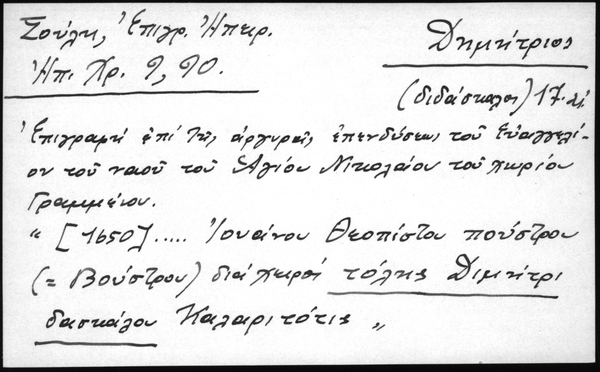 Σούλη, Ἐπιγρ. Ἠπειρ.
Δημήτριος
Ἠπ. Χρ. 9, 90.
(διδάσκαλος) 17. αἰ.
Ἐπιγραφή ἐπί τῆς ἀργυρᾶς ἐπενδύσεως τοῦ Εὐαγγελί-
ου τοῦ ναοῦ τοῦ Ἁγίου Νικολάου τοῦ χωρίου
Γραμμένου.
" [1650] ..... Ἰουάνου Θεοπίστου πούστρου
(= Βούστρου) διά χειρός τόλης Διμήτρι
δασκάλου Καλαριτότις "